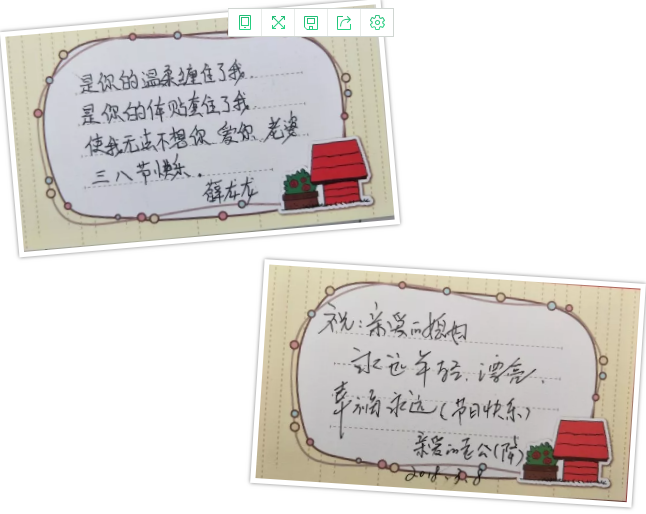 是你的温柔缠住了我.
是你的体贴套住了我.
使我无法不想你.爱你.老婆
三八节快乐.
薛龙龙
祝:亲爱的媳妇
永远年轻.漂亮.
幸福永远(节日快乐)
亲爱的老公(陆)
2018.3.8